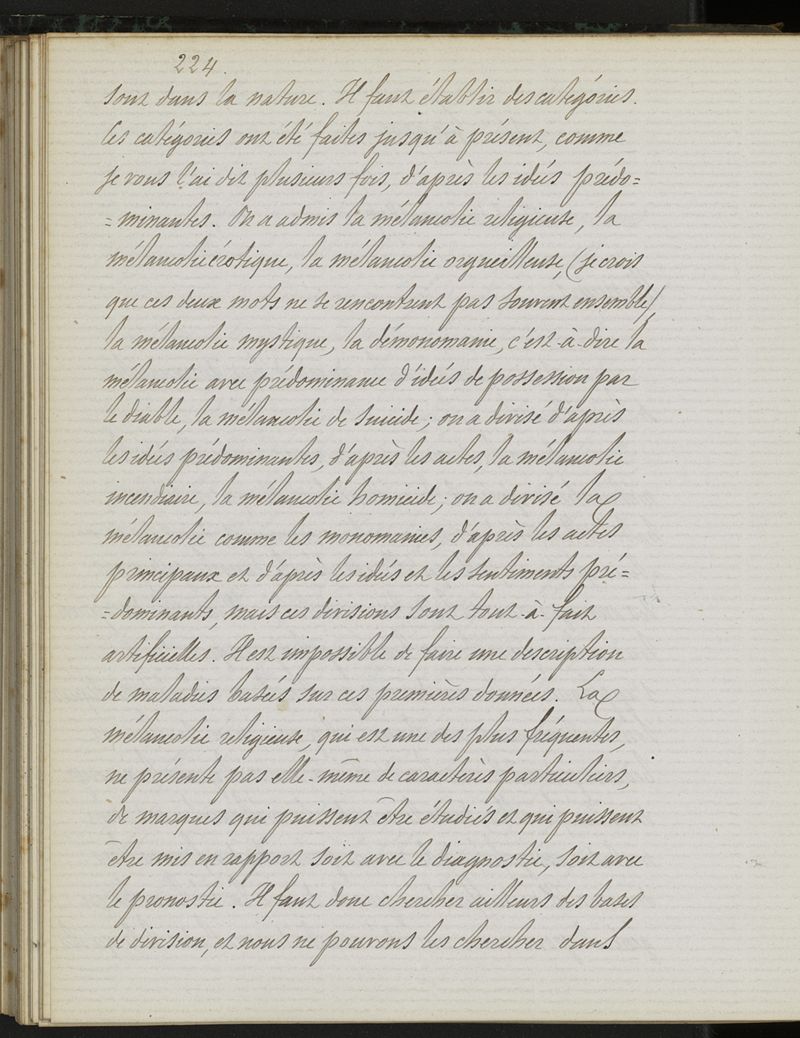 224.
sont dans la nature. Il faut établir des catégories.
Ces catégories ont été faites jusqu'à présent, comme
je vous l'ai dit plusieurs fois, d'après les idées prédo=
=minantes. On a admis la mélancolie religieuse, la
mélancolie érotique, la mélancolie orgueilleuse, (je crois
que ces deux mots ne se rencontrent pas souvent ensemble)
la mélancolie mystique, la démonomanie, c'est-à-dire la
mélancolie avec prédominance d'idées de possession par
le diable, la mélancolie de suicide; on a divisé d'après
les idées prédominantes, d'après les actes, la mélancolie
incendiaire, la mélancolie homicide; on a divisé la
mélancolie comme les monomanies, d'après les actes
principaux et d'après les idées et les sentiments pré=
=dominants, mais ces divisions sont tout-à-fait
artificielles. Il est impossible de faire une description
de maladies basées sur ces premières données. La
mélancolie religieuse, qui est une des plus fréquentes,
ne présente pas elle-même de caractères particuliers,
de marques qui puissent être étudiés et qui puissent
être mis en rapport soit avec le diagnostic, soit avec
le pronostic. Il faut donc chercher ailleurs des bases
de division, et nous ne pouvons les chercher dans